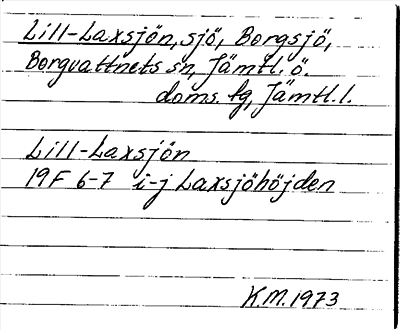 Lill-Laxsjön, sjö, Borgsjö,
Borgvattnets sn, Jämtl. ö.
doms. tg, Jämtl. l.
Lill-Laxsjön
19F 6-7 i-j Laxsjöhöjden
K.M. 1973